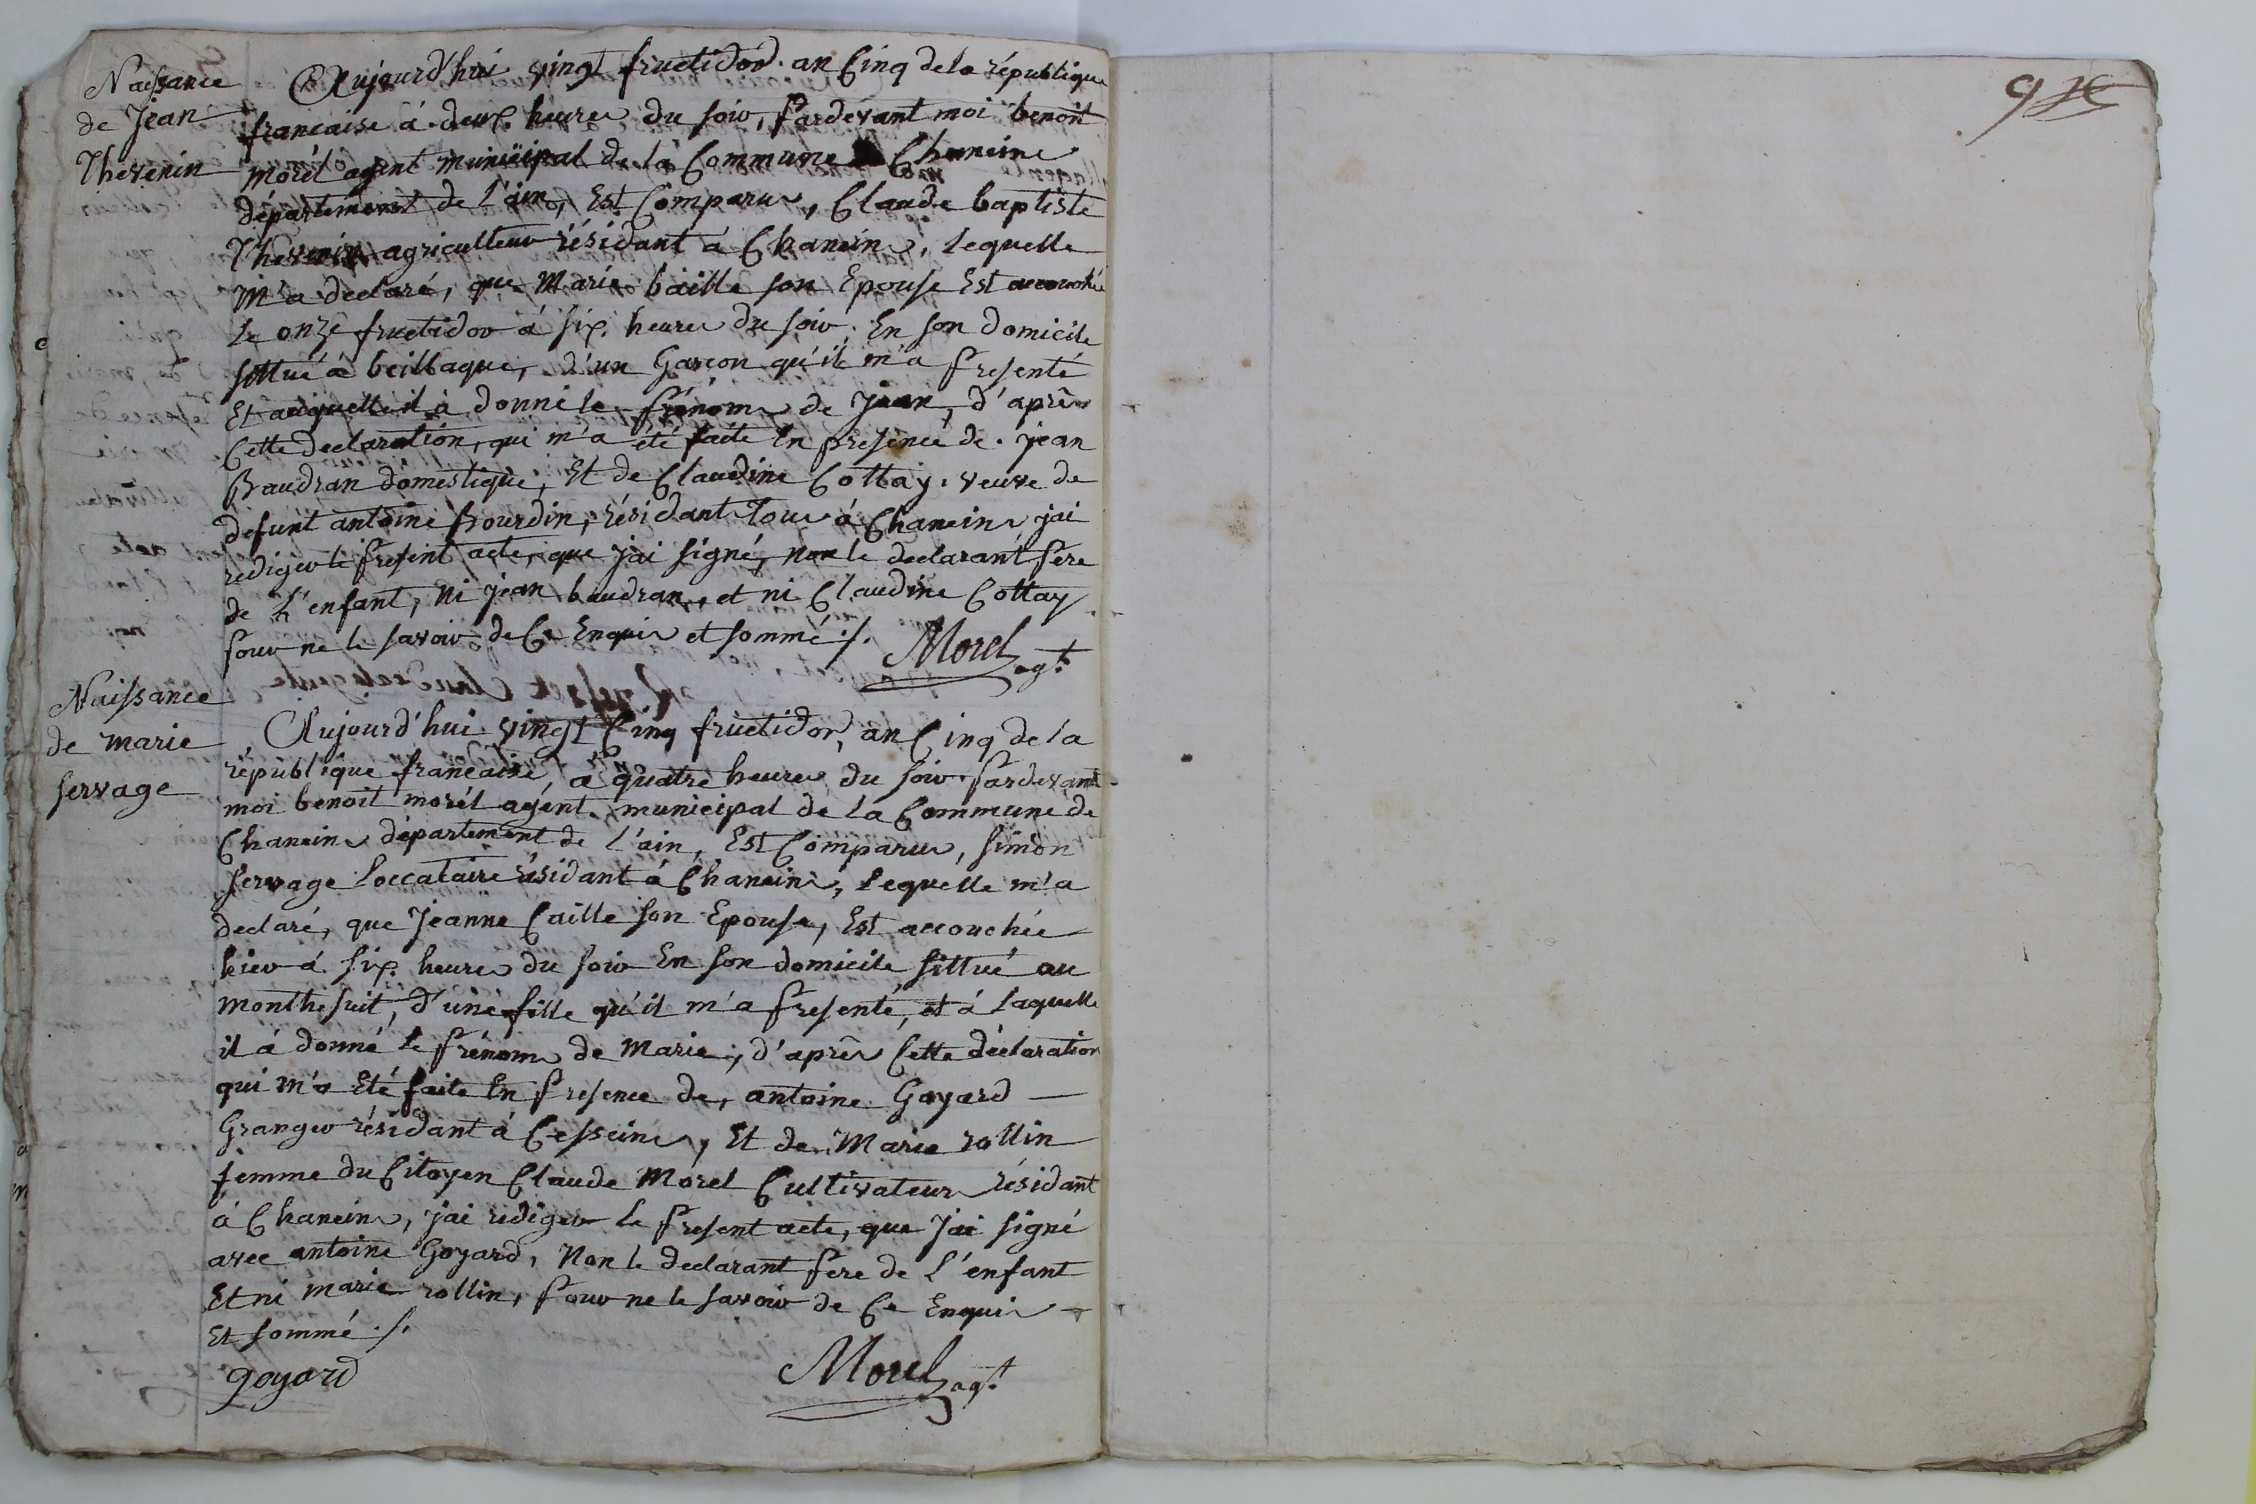 Naissance
de Jean
Thevenin
Aujourd'hui vingt fructidor an Cinq de la république
francaise à deux heures du soir, pardevant moi benoit
morél agent municipal de la Commune Chaneins
département de l'ain, Est Comparus, Claude baptiste
Thevenin agriculteur résidant à Chaneins, lequelle
m'a declaré, que Marie baille son Epouse Est accouchée
le onze fructidor à six heures du soir En son domicile
sittué à beillaque, d'un Garcon qu'il m'a presenté
Et auquelle il à donné le prénoms de jean, d'aprês
Cette declaration, qui m'a été faite En presence de jean
Baudran domestique, Et de Claudine Cottay veuve de
defunt antoine bourdin, résidant Tous à Chaneins jai
rediger le present acte, que jai signé, non le declarant pere
de L'enfant, ni jean baudran, et ni Claudine Cottay
pour ne le savoir de Ce Enquis et sommé ./.
Morel agt
Naissance
de marie
servage
Aujourd'hui vingt Cinq fructidor, an Cinq de la
république francaise, à quatre heures du soir pardevant
moi benoit morél agént municipal de la Commune de
Chaneins département de l'ain, Est Comparus, simon
servage Loccataire résidant à Chaneins, lequelle m'a
declaré, que Jeanne Caille son Epouse, Est accouchée
hier à six heures du soir En son domicile sittué au
monthesuit, d'une fille qu'il m'a presenté, et à laquelle
il à donné le prénoms de Marie, d'aprês Cette déclaration
qui m'a Eté faite En presence de, antoine Goyard
Granger résidant à Cesseins, Et de Marie rollin
femme du Citoyen Claude Morel Cultivateur résidant
à Chaneins, jai rediger le present acte, que Jai signé
avec antoine Goyard, Non le declarant pere de L'enfant
Et ni marie rollin, pour ne le savoir de Ce Enquis
Et sommé ./.
goyard
Morel agt
9